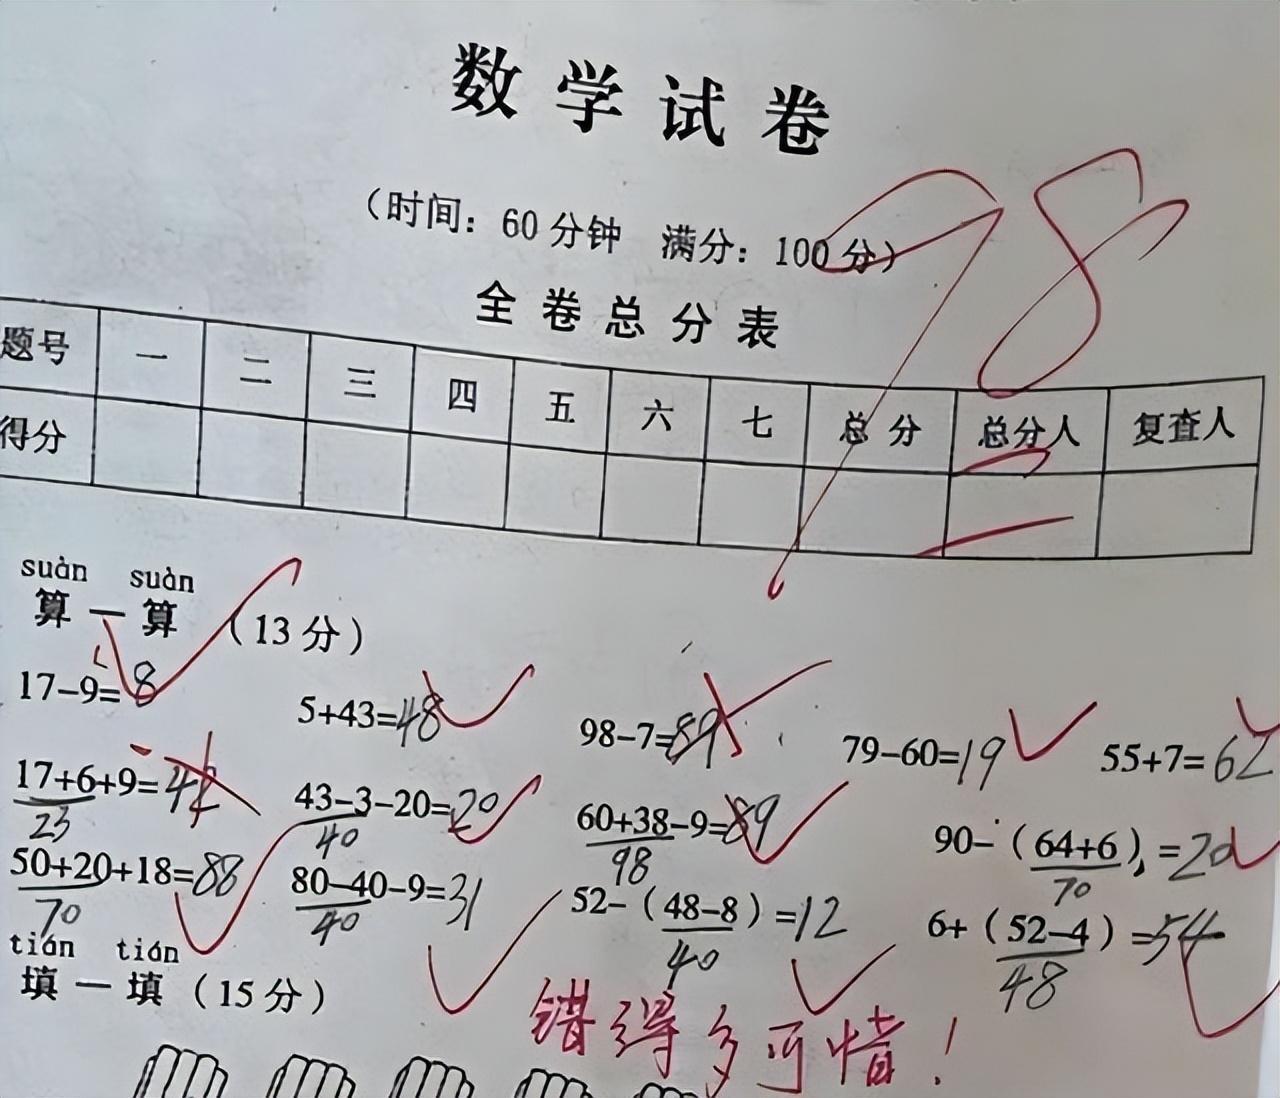 数学试卷
98
（时间：60分钟 满分：100分）
全卷总分表
题号 一 二 三 四 五 六 七 总分 总分人 复查人
得分
suàn suàn
算一算（13分）
17-9=8 5+43=48 98-7=89 79-60=19 55+7=62
17+6+9=42 43-3-20=20 60+38-9=89 90-（64+6）=20
23 40 98 70
50+20+18=88 80-40-9=31 52-（48-8）=12 6+（52-4）=54
70 40 40 48
tián tián
填一填（15分）
错得多可惜！